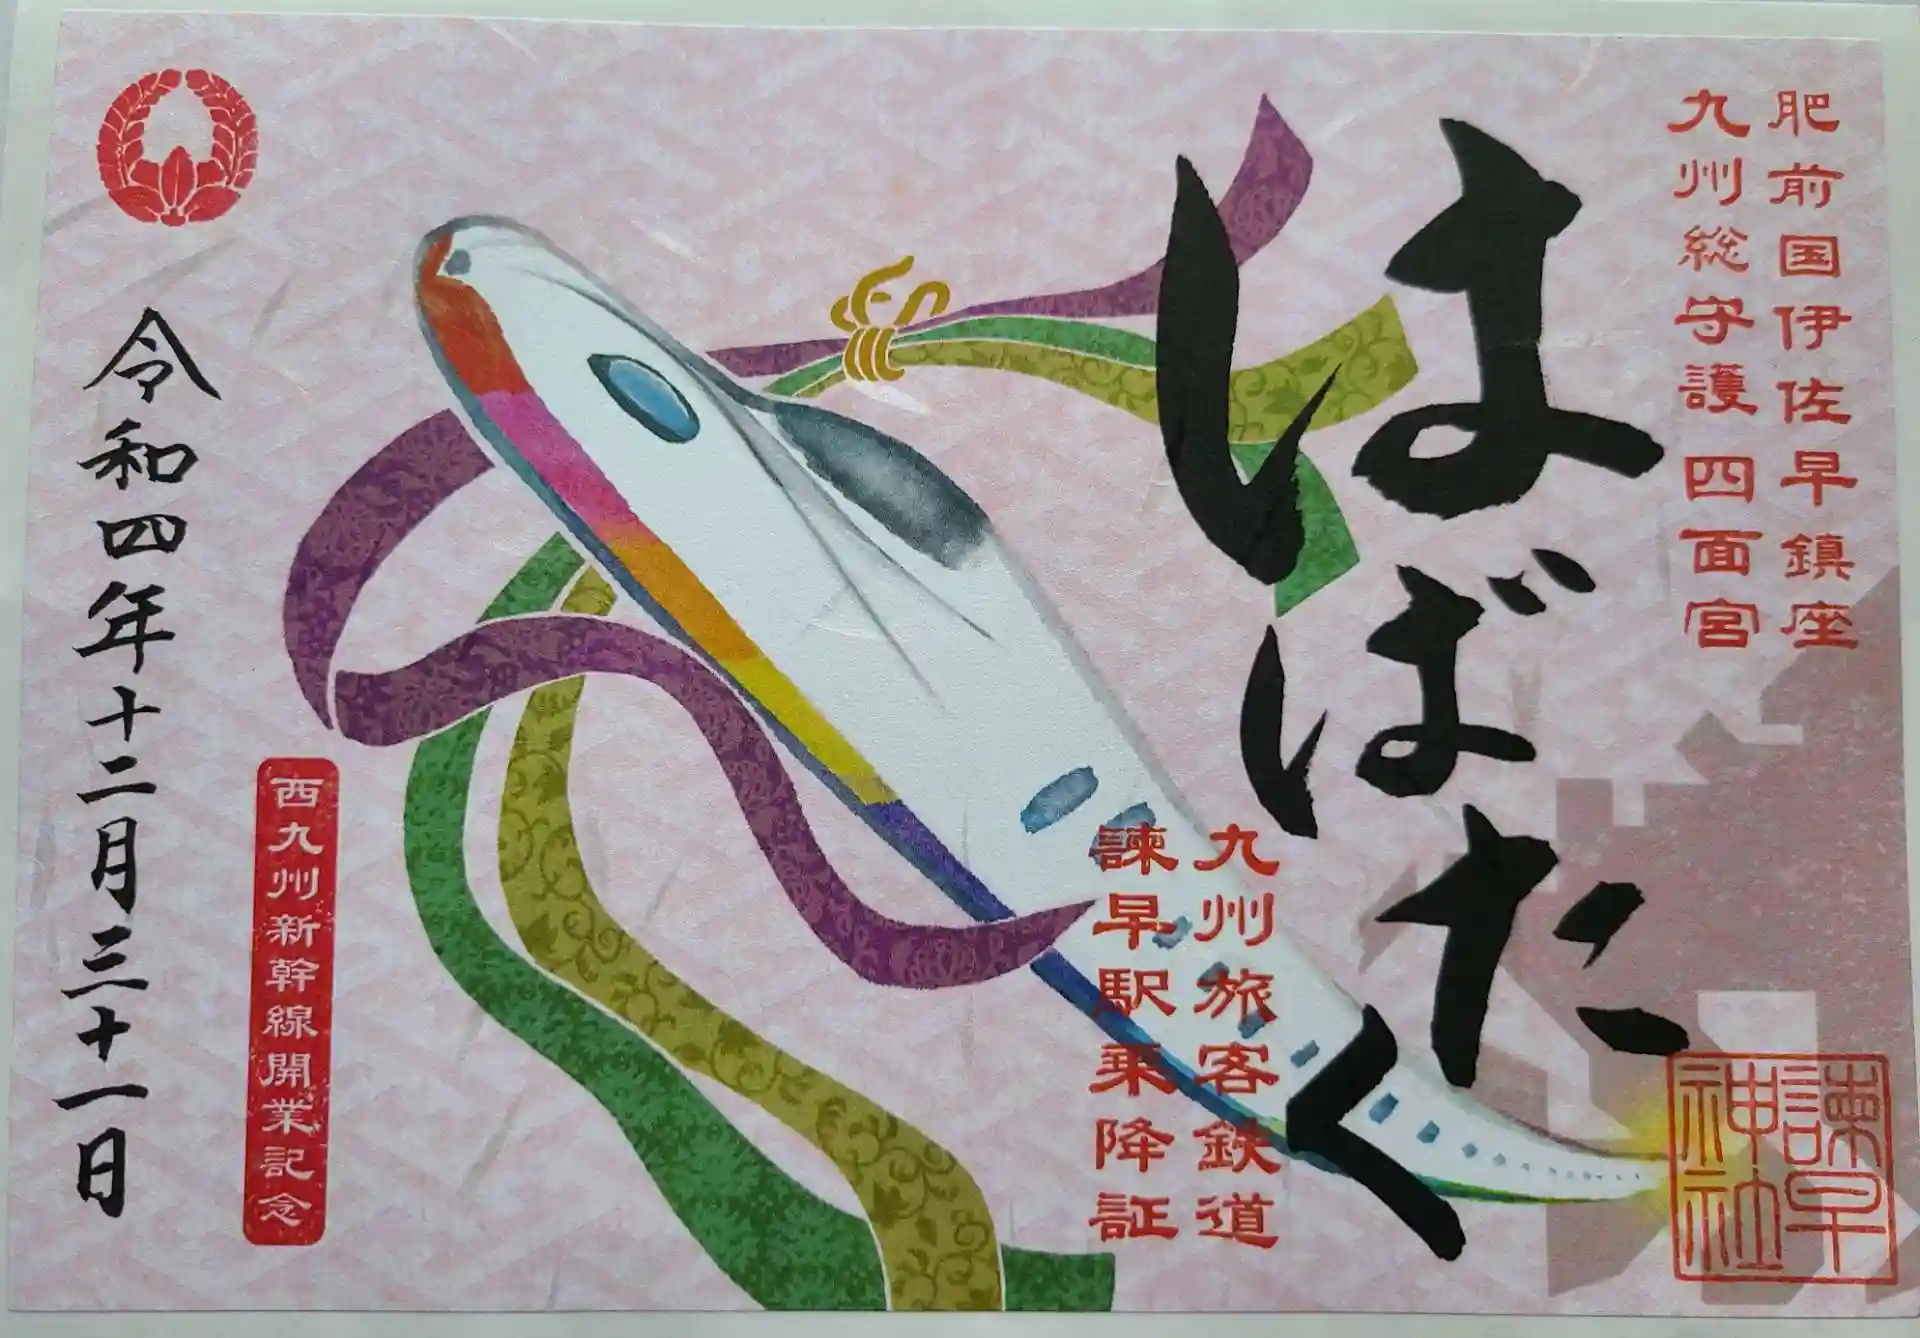 肥前国伊佐早鎮座
九州総守護 四面宮
はばたく
諫早
神社
九州旅客鉄道
諫早駅乗降証
西九州新幹線開業記念
令和四年十二月三十一日